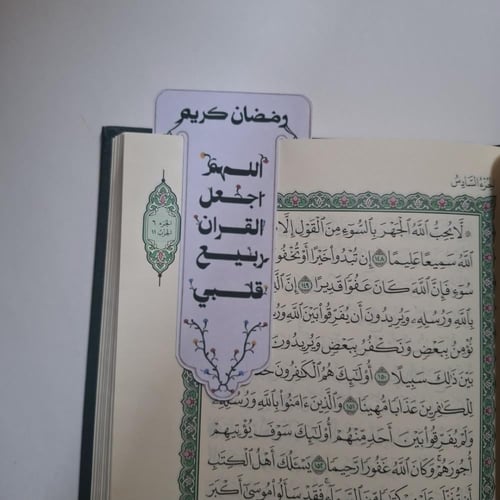 رمضان كريم
اللهم
اجعل
القران
ربيع
قلبي
الجزء ٦
الحزب ١١
الجزء السادس
لَا يُحِبُّ اللَّهُ الْجَهْرَ بِالسُّوءِ مِنَ الْقَوْلِ إِلَّا
اللَّهُ سَمِيعًا عَلِيمًا ١٤٨ إِن تُبْدُوا خَيْرًا أَوْ تُخْفُو
سُوءٍ فَإِنَّ اللَّهَ كَانَ عَفُوًّا قَدِيرًا ١٤٩ إِنَّ الَّ
بِاللَّهِ وَرُسُلِهِ وَيُرِيدُونَ أَن يُفَرِّقُوا بَيْنَ اللَّهِ وَرُ
نُؤْمِنُ بِبَعْضٍ وَنَكْفُرُ بِبَعْضٍ وَيُرِيدُونَ
بَيْنَ ذَٰلِكَ سَبِيلًا ١٥٠ أُولَٰئِكَ هُمُ الْكَافِرُونَ حَ
لِلْكَافِرِينَ عَذَابًا مُّهِينًا ١٥١ وَالَّذِينَ آمَنُوا بِاللَّهِ وَرُسُلِهِ
وَلَمْ يُفَرِّقُوا بَيْنَ أَحَدٍ مِّنْهُمْ أُولَٰئِكَ سَوْفَ يُؤْتِيهِمْ
أُجُورَهُمْ وَكَانَ اللَّهُ غَفُورًا رَّحِيمًا ١٥٢ يَسْأَلُكَ أَهْلُ الْكِتَابِ
فَقَدْ سَأَلُوا مُوسَىٰ أَكْبَرَ